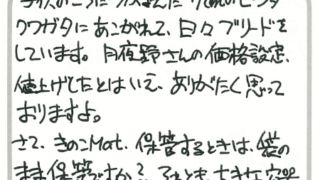 クワガタにあこがれて、日々ブリードを
しています。月夜野さんの価格設定、
値上げしたとはいえ、ありがたく思って
おりますよ。
さて、きのこMat、保管するときは、袋の
まま保管ですか？それとも大きな容器